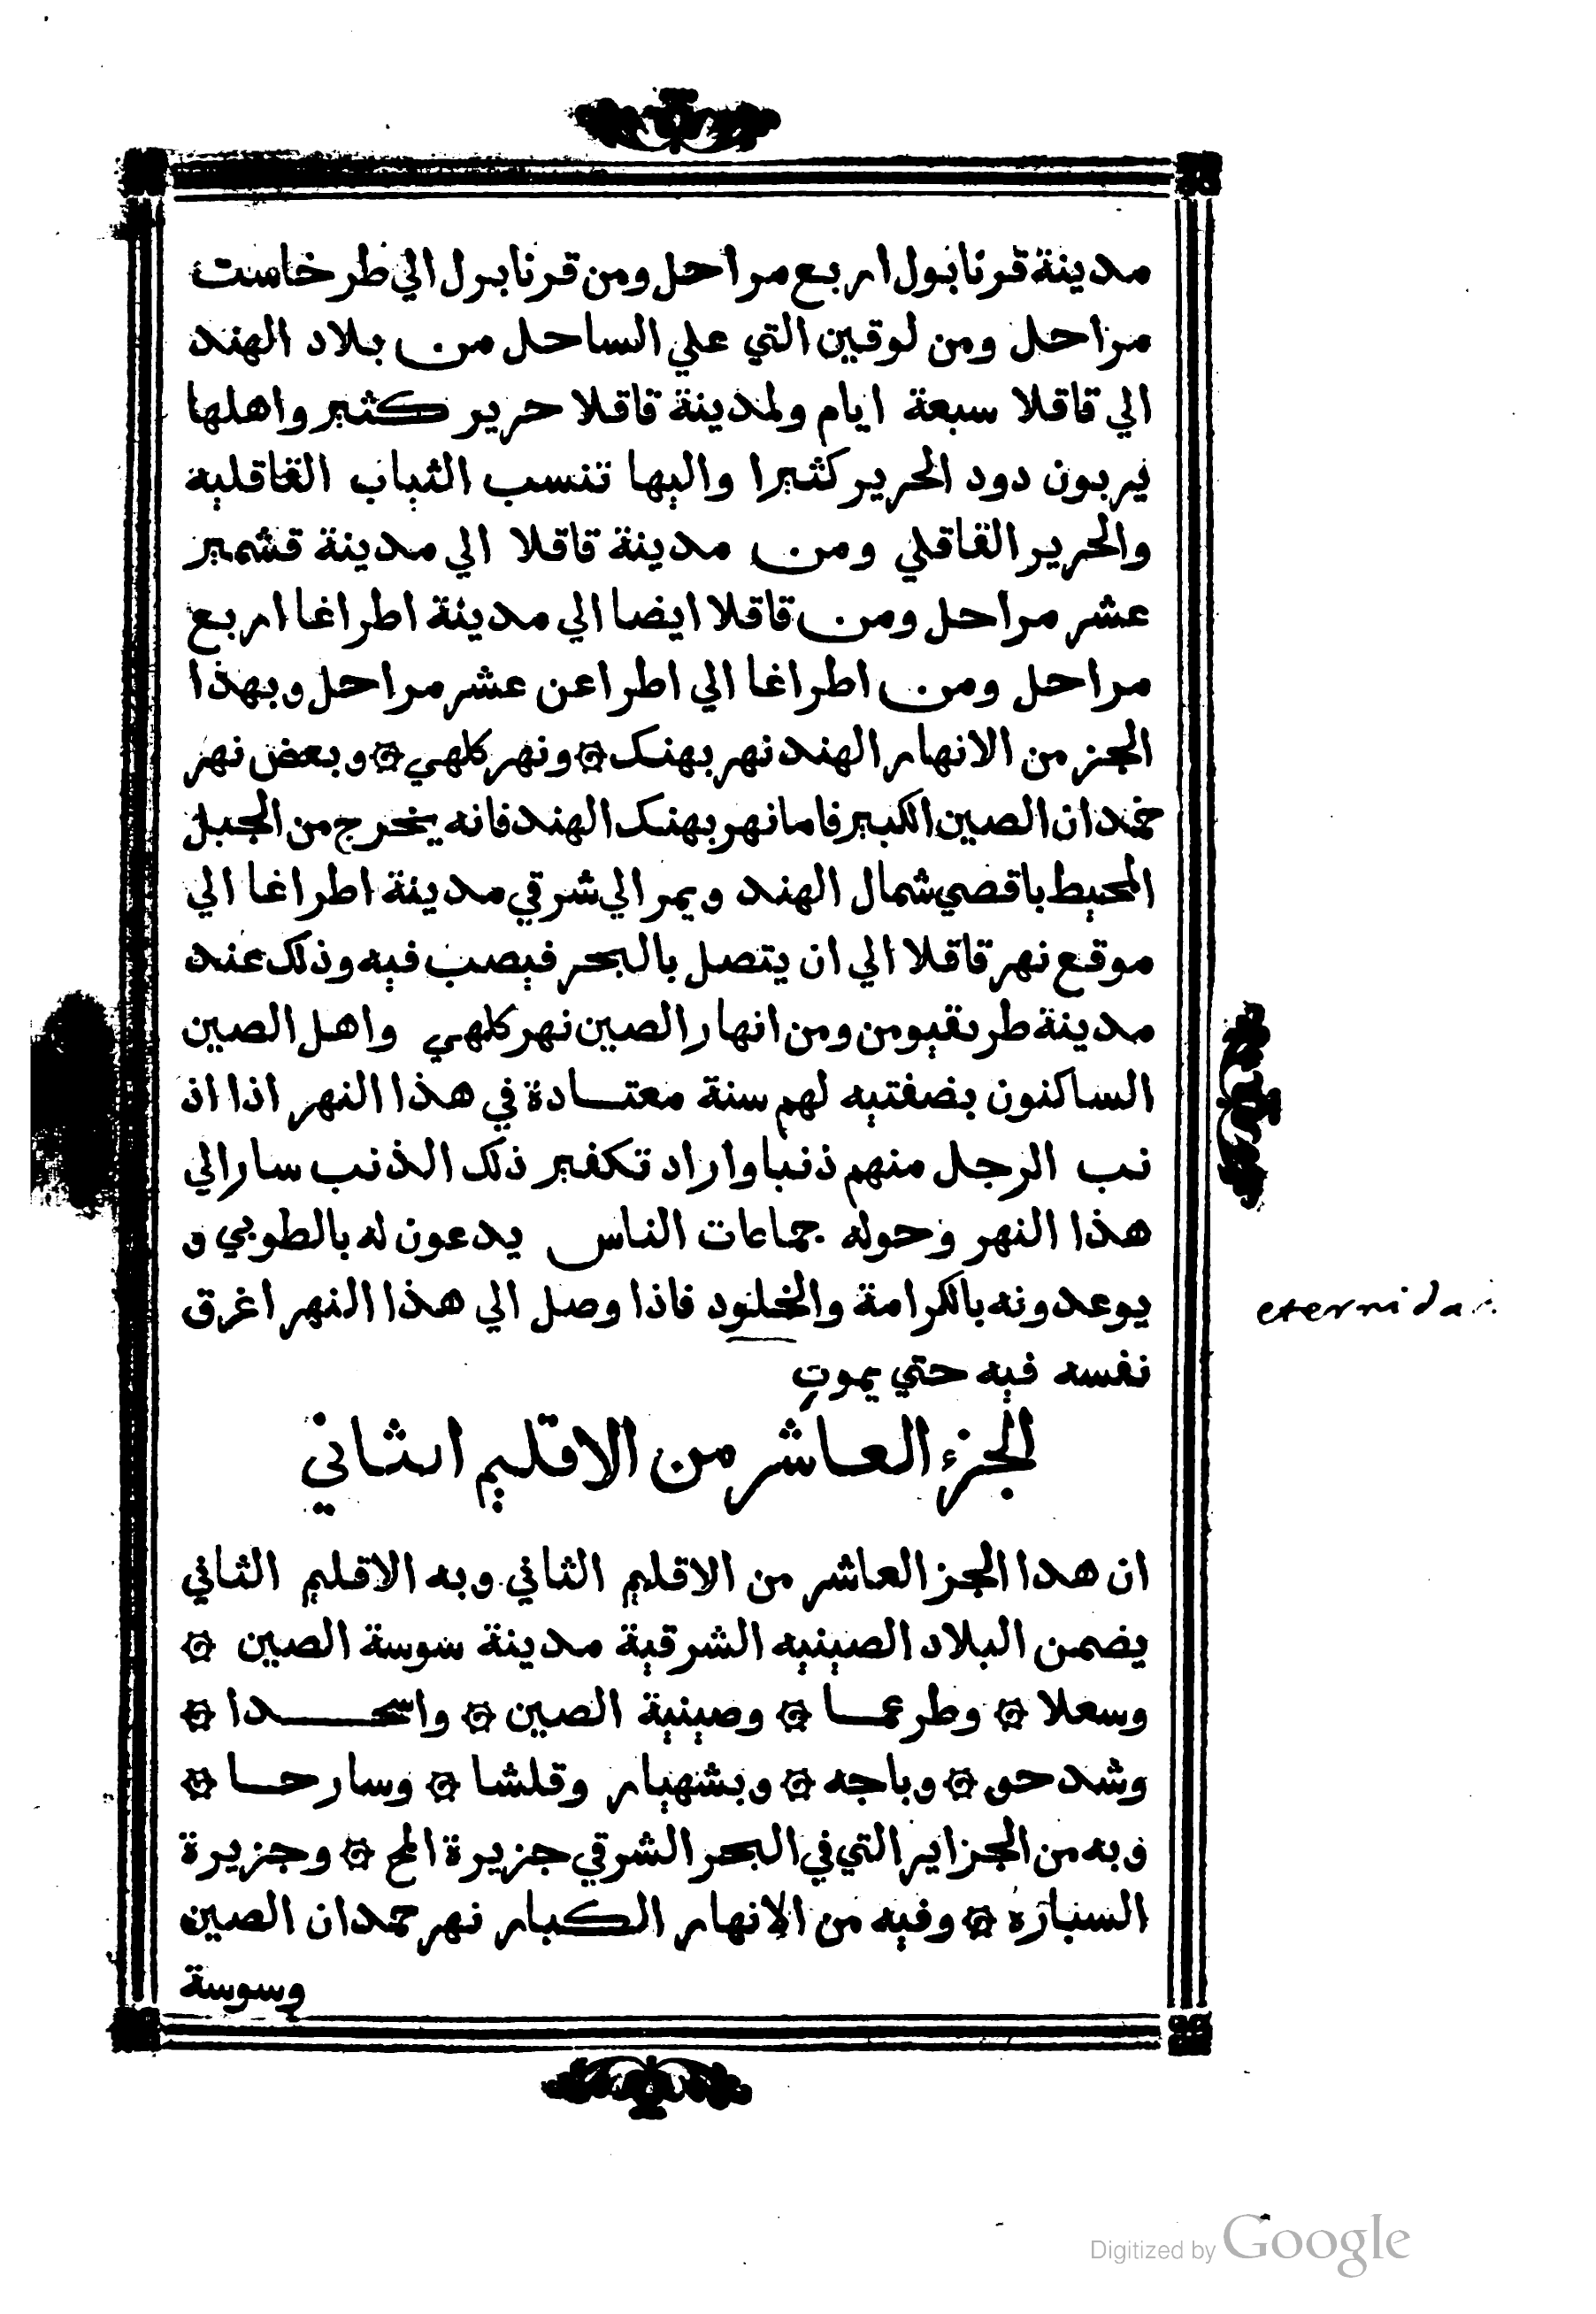 مدينة قرنابول اربع مراحل ومن قرنابرل الي طرخاست
مراحل ومن لوقين التي علي الساحل من بلاد الهند
الي قاقلا سبعة ايام ولمدينة قاقلا حرير كثير واهلها
يربون دود الحرير كثيرا واليها تنسب الثياب القاقليه
والحرير القاقلي ومن مدينة قاقلا الي مدينة قشمير
عشر مراحل ومن قاقلا ايضا الي مدينة اطراغا اربع
مراحل ومن اطراغا الي اطراعن عشر مراحل وبهذا
الجز من الانهار الهند نهر بهنك ۞ ونهر كلهي ۞ وبعض نهر
خمدان الصين الكبير فاما نهر بهنك الهند فانه يخرج من الجبل
المحيط باقصي شمال الهند ويمر الي شرقي مدينة اطراغا الي
موقع نهر قاقلا الي ان يتصل بالبحر فيصب فيه وذلك عند
مدينة طريقيومن ومن انهار الصين نهر كلهي واهل الصين
الساكنون بضفتيه لهم سنة معتادة في هذا النهر اذا اذ
نب الرجل منهم ذنبا واراد تكفير ذلك الذنب سار الي
هذا النهر وحوله جماعات الناس يدعون له بالطوبي و
يوعدونه بالكرامة والخلود فاذا وصل الي هذا النهر اغرق
eternidad
نفسه فيه حتي يموت
الجزء العاشر من الاقليم الثاني
ان هدا الجز العاشر من الاقليم الثاني وبه الاقليم الثاني
يضمن البلاد الصينيه الشرقية مدينة سوسة الصين ۞
وسعلا ۞ وطرعما ۞ وصينية الصين ۞ ۞
وشدحو ۞ وباجه ۞ وبشهيار وقلشا ۞ وسارحا ۞
وبه من الجزاير التي في البحر الشرقي جزيرة ۞ وجزيرة
السنبازه ۞ وفيه من الانهار الكبار نهر حمدان الصين
وسوسة
Digitized by Google